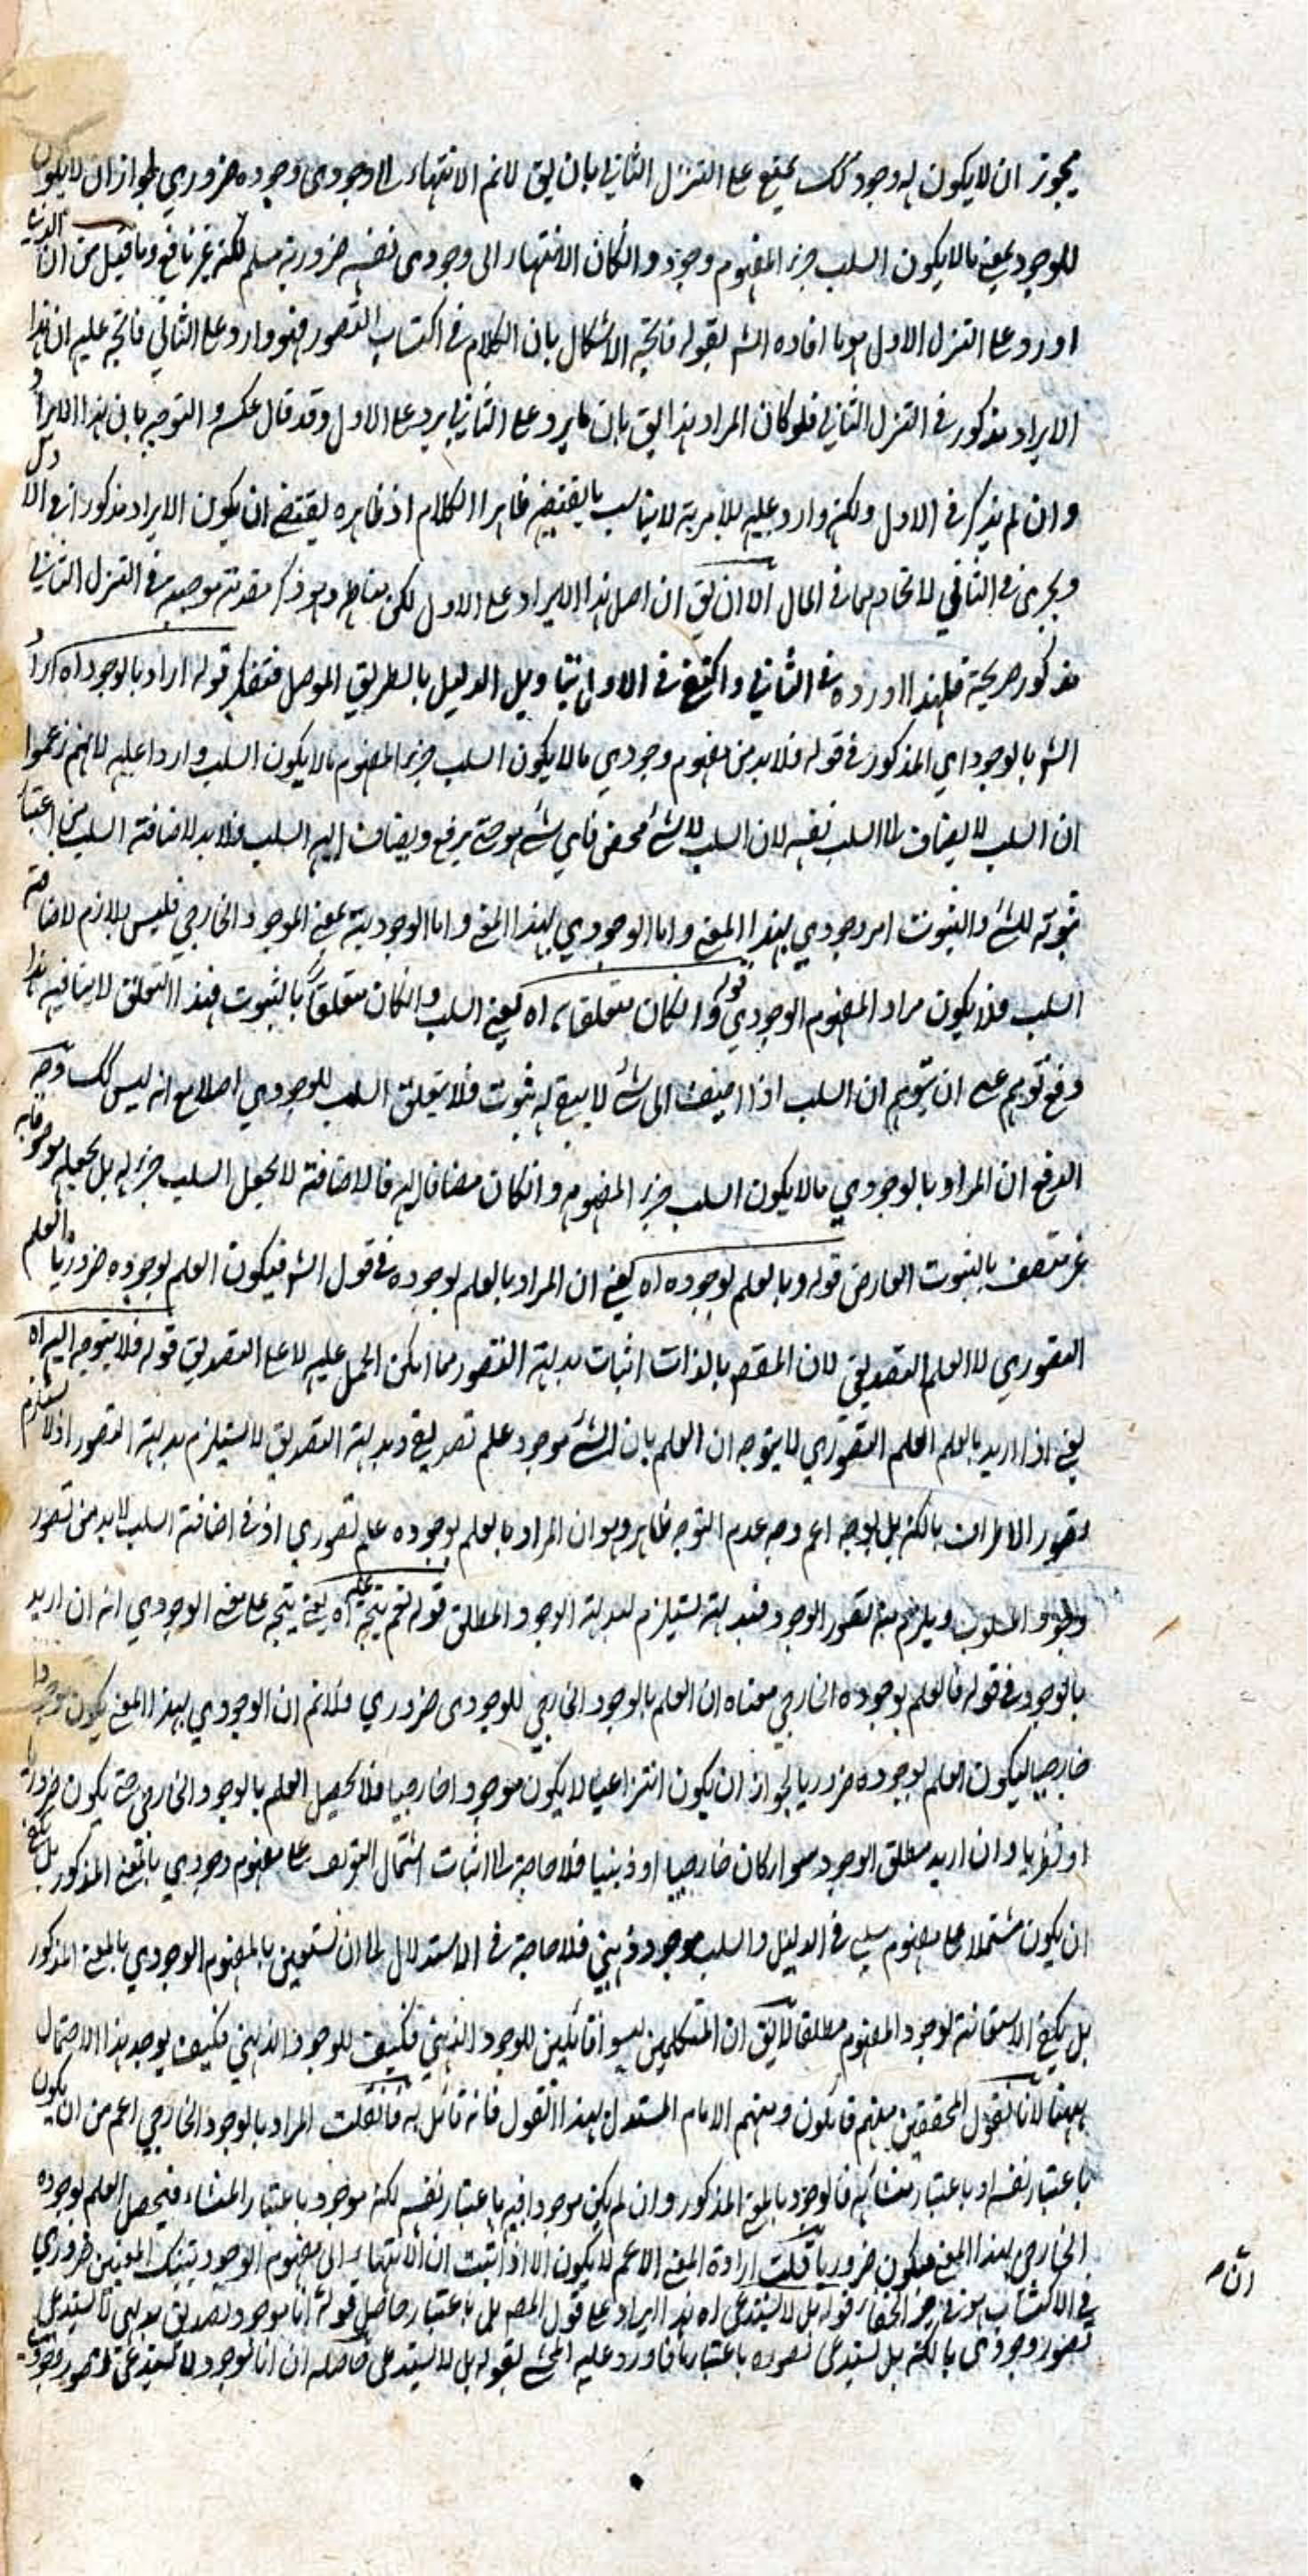 يجوز ان لا يكون له وجود كك يمنع على التنزل الثاني بان يق لا نم الانتهاء الى وجودى وجوده ضروري لجواز ان لا يكون
للوجود بمعنى ما لا يكون السلب جزء المفهوم وجود وانكان الانتهاء الى وجودى نفسه ضرورية مسلم لكنه غير نافع وما قيل من ان الذي
اورد على التنزل الاول هو ما افاده الشر بقوله فاتجه الاشكال بان الكلام في اكتساب التصور فهو وارد على الثاني فاتجه عليه ان هذا
الايراد مذكور في التنزل الثاني فلو كان المراد هذا يق بان ما يرد على الثاني يرد على الاول وقد قال عكسه والتوجيه بان هذا الايراد
وان لم يذكر في الاول ولكنه وارد عليه بلا مرية لا يناسب ما يقتضيه ظاهر الكلام اذ ظاهره يقتضي ان يكون الايراد مذكورا في الاول
ويجرى في الثاني لاتحادهما في المال الا ان يق ان اصل هذا الايراد على الاول لكن مناطه وهو ذكر مقدمة موصلة في التنزل الثاني
مذكور صريحة فلهذا اورده في الثاني واكتفى في الاول بتاويل الدليل بالطريق الموصل فتفكر قوله اراد بالوجود اه اراد
الشر بالوجود اي المذكور في قوله فلا بد من مفهوم وجودي ما لا يكون السلب جزء المفهوم ما لا يكون السلب واردا عليه لانهم زعموا
ان السلب لا يضاف الى السلب نفسه لان السلب لا شئ محض فاي شئ هو حتى يرفع ويضاف اليه السلب فلا بد لاضافة السلب من اعتبار
ثبوته للشئ والثبوت امر وجودي بهذا المعنى واما الوجودي بهذا المعنى واما الوجودية بمعنى الموجود الخارجي فليس بلازم لاضافة
السلب فلا يكون مراد المفهوم الوجودي قوله وانكان متعلقا به اه يعني السلب وانكان متعلقا بالثبوت فهذا التعلق لا ينافيه هذا
دفع توهم عسى ان يتوهم ان السلب اذا اضيف الى شئ لا يبقى له ثبوت فلا يتعلق السلب للوجودي اصلا مع انه ليس كك وجه
الدفع ان المراد بالوجودي ما لا يكون السلب جزء المفهومه وانكان مضافا اليه فالاضافة لا تجعل السلب جزء له بل تجعله موصوفا به
غير متصف بالثبوت العارض قوله وبالعلم بوجوده اه يعني ان المراد بالعلم بوجوده في قول الشر فيكون العلم بوجوده ضروريا العلم
التصوري لا العلم التصديقي لان المقصود بالذات اثبات بداهة التصور مما امكن الحمل عليه لا على التصديق قوله فلا يتوجه اليه اه
يعني اذا اريد بالعلم العلم التصوري لا يتوجه ان العلم بان الشئ موجود علم تصديقي وبداهة التصديق لا يستلزم بداهة التصور اذ لا يستلزم
تصور الاطراف بالكنه بل بوجه اعم وجه عدم التوجه ظاهر وهو ان المراد بالعلم بوجوده علم تصوري اذ في اضافة السلب لا بد من تصور
وجود المسلوب ويلزم منه تصور الوجود فبداهته يستلزم لبداهة الوجود المطلق قوله نعم يتجه عليه اه يعني يتجه على معنى الوجودي انه ان اريد
بالوجود في قوله فالعلم بوجوده الخارجي معناه ان العلم بالوجود الخارجي للوجودى ضروري فلا نم ان الوجودي بهذا المعنى يكون موجودا
خارجيا ليكون العلم بوجوده ضروريا لجواز ان يكون انتزاعيا لا يكون موجودا خارجيا فلا يحصل العلم بالوجود الخارجي حتى يكون ضروريا
او نظريا وان اريد مطلق الوجود سواء كان خارجيا او ذهنيا فلا حاجة الى اثبات اشتمال التعريف على مفهوم وجودي بالمعنى المذكور بل يكفي
ان يكون مشتملا على مفهوم سلبي في الدليل والسلب موجود ذهني فلا حاجة في الاستدلال الى ان نستعين بالمفهوم الوجودي بالمعنى المذكور
بل يكفي الاستعانة لوجود المفهوم مطلقا لا يق ان المتكلمين ليسوا قائلين للوجود الذهني فكيف للوجود الذهني فكيف يوجد هذا الاحتمال
ههنا لانا نقول المحققين منهم قائلون ومنهم الامام المستدل بهذا القول فانه قائل به فان قلت المراد بالوجود الخارجي اعم من ان يكون
باعتبار نفسه او باعتبار منشائه فالوجود بالمعنى المذكور وان لم يكن موجودا فيه باعتبار نفسه لكنه موجود باعتبار المنشاء فيحصل العلم بوجوده
الخارجي بهذا المعنى فيكون ضروريا قلت ارادة المعنى الاعم لا يكون الا اذا ثبت ان الانتهاء الى مفهوم الوجود بتينك المعنيين ضروري
في الاكتساب هو في حيز الخفاء قوله بل لا يستدعى اه هذا ايراد على قول المصر بل باعتبار حاصل قوله انا موجود تصديق بديهى لا يستدعى
تصور وجودى بالكنه بل يستدعى تصوره باعتبار ما فاورد عليه المحشى بقوله بل لا يستدعى حاصله ان انا موجود لا يستدعى تصور وجودي
ان